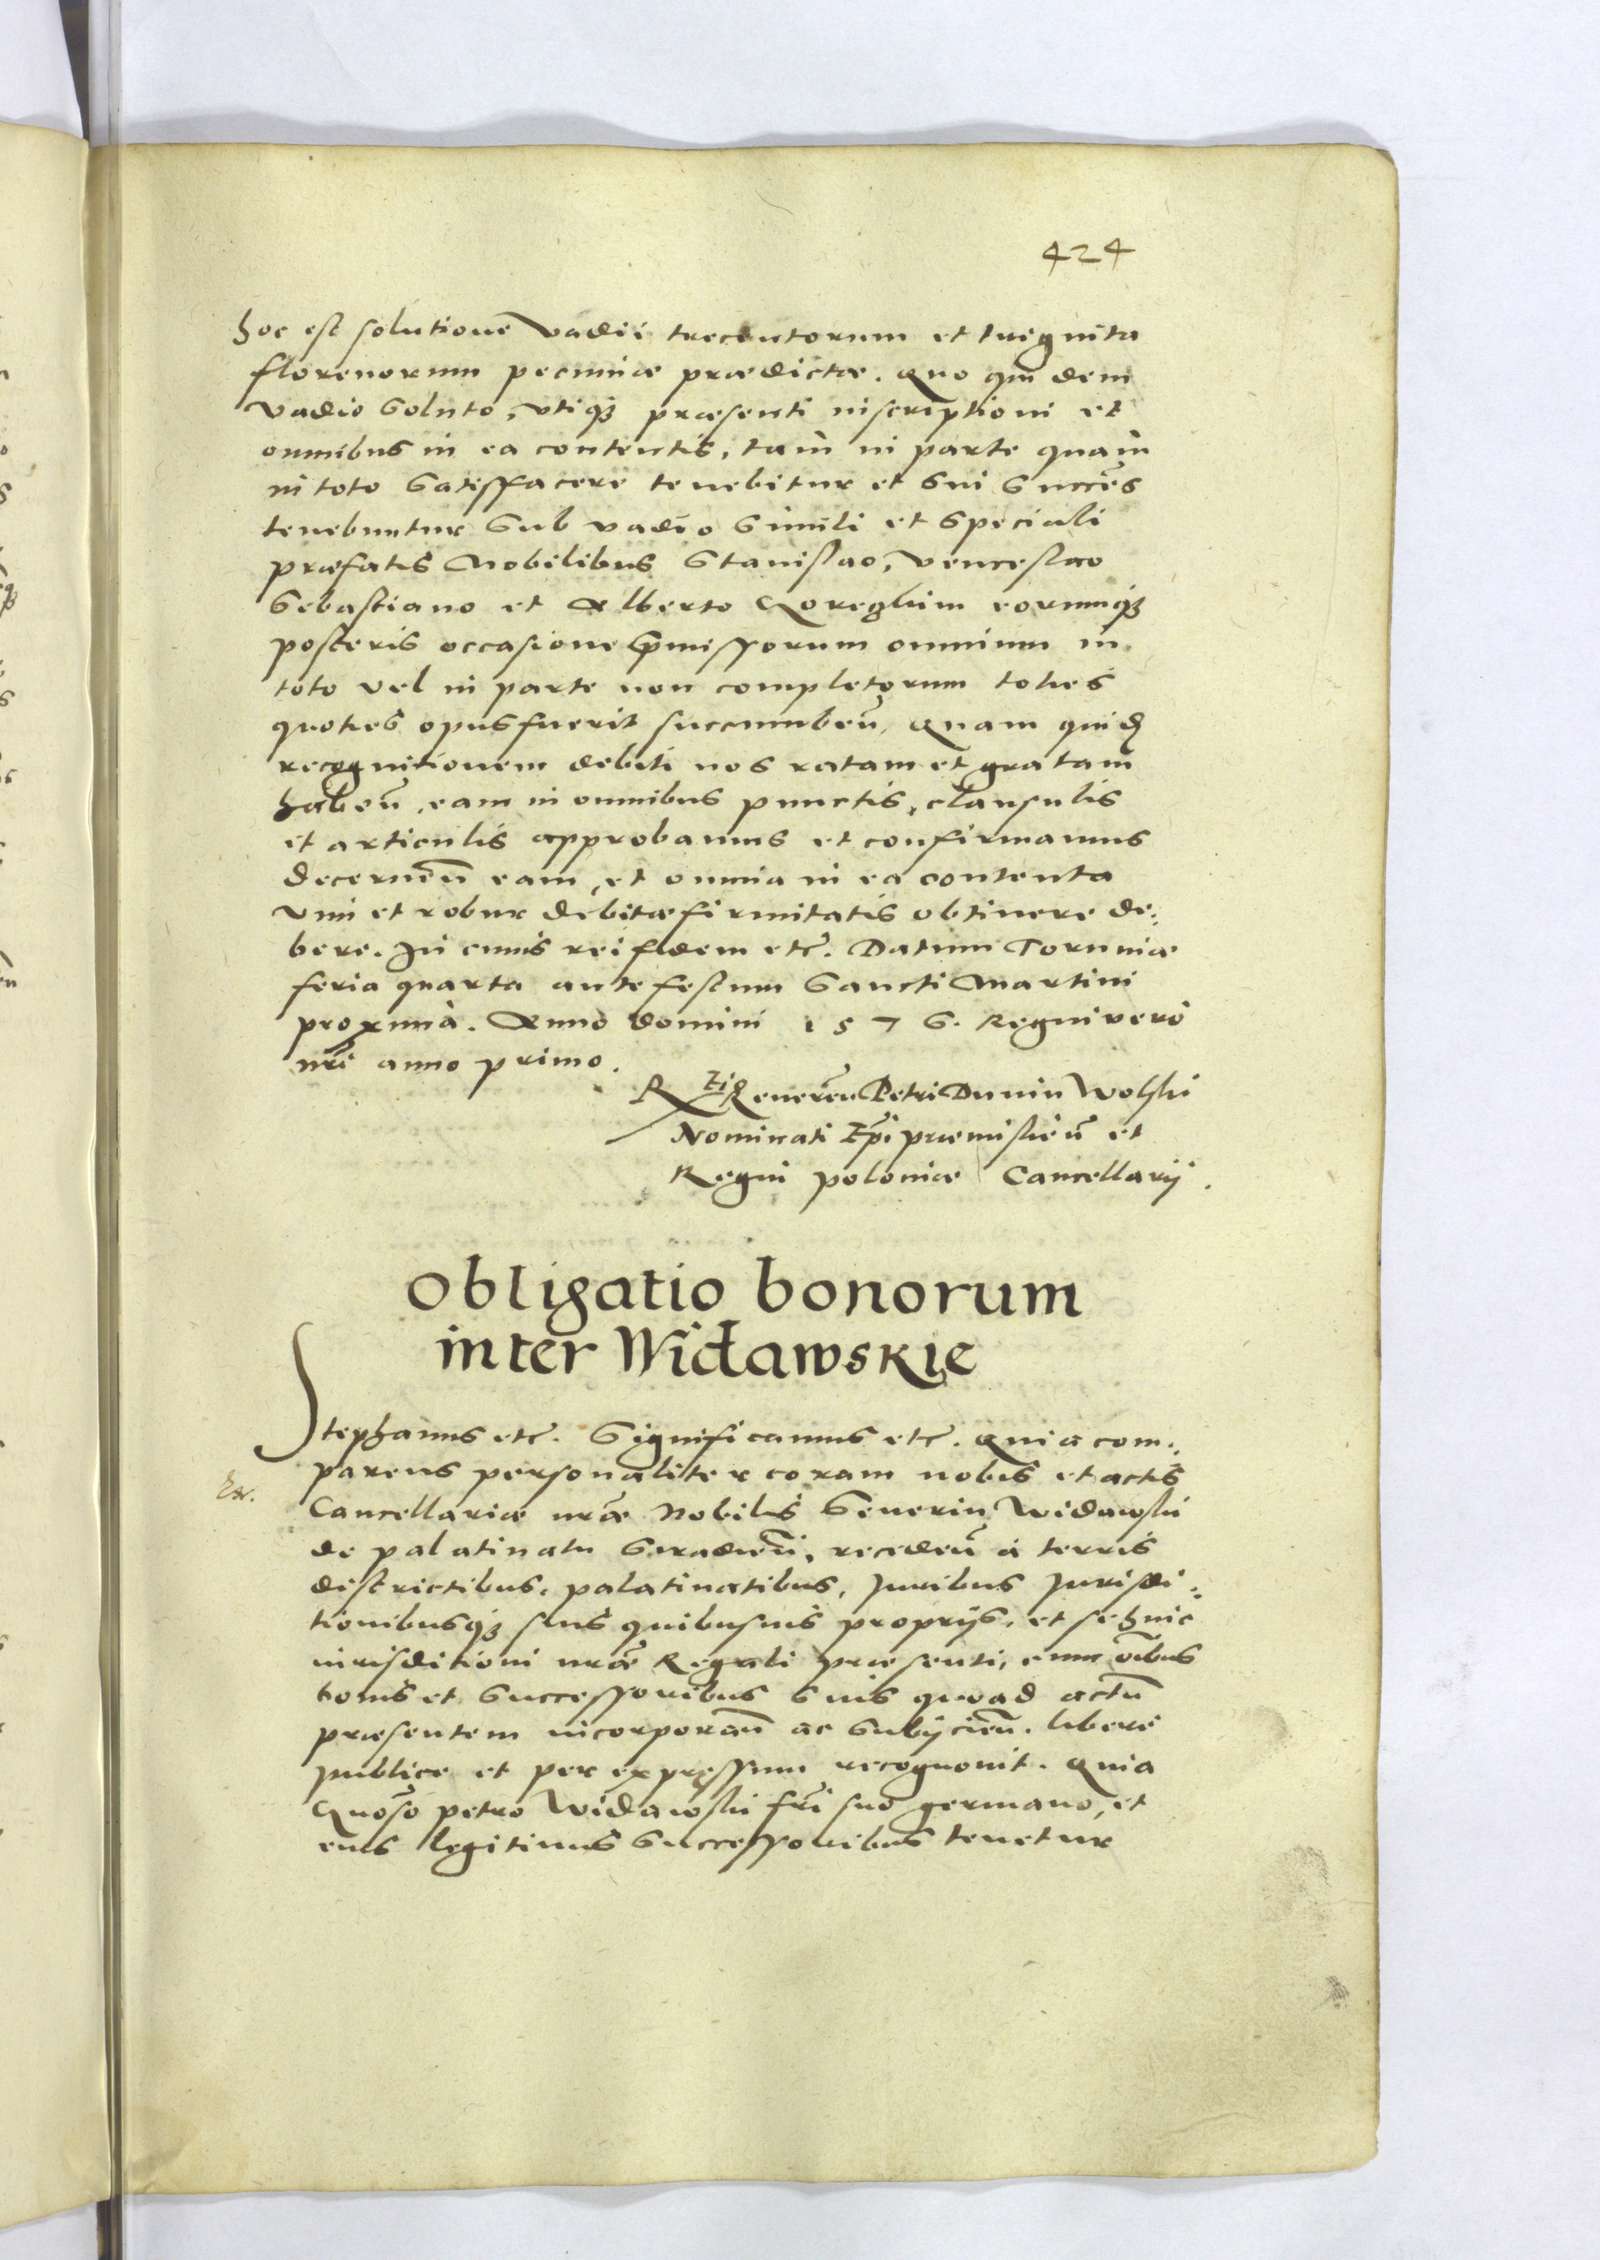 424
hoc est solutione vadii trecentorum et triginta
florenorum pecuniæ prædictæ. Quo qui dem
vadio soluto, vtiqꝫ præsenti inscriptioni et
omnibus in ea contentis, tam in parte quam
in toto satisffacere tenebitur et sui succẽs
tenebuntur sub vadio simili et speciali
præfatis Nobilibus Stanislao, Venceslao
Sebastiano et Alberto eorumqꝫ
posteris occasione p̃missorum omnium in
toto vel in parte non completorum toties
quoties opus fuerit succumbeñ. Quam quid
recognitionem debiti nos ratam et gratam
habeñ, eam in omnibus punctis, clausulis
et articulis approbamus et confirmamus
decerneñ eam, et omnia in ea contenta
vim et robur debitæ firmitatis obtinere de:
bere. In cuius rei fidem etc̃. Datum Toruniæ
feria quarta ante festum Sancti Martini
proxima. Anno domini 1576. Regni vero
nr̃i anno primo.
Rtio Reuereñ Petri Dunin Wolski
Nominati Ep̃i præmislieñ et
Regni poloniæ Cancellarij.
Obligatio bonorum
inter Widawskie
Stephanus etc̃. Significamus etc̃. Quia com:
parens personaliter coram nobis et actis
Cancellariæ nr̃æ Nobilis Seuerin Widawski
de palatinatu Siradieñ, recedeñ a terris
districtibus, palatinatibus, Juribus Jurisdi:
tionibusqꝫ suis quibusuis proprijs, et se huic
iurisditioni nr̃æ Regali præsenti, cum õibus
bonis et successoribus suis quoad actũ
præsentem incorporañ ac subijcieñ. libere
publice et per expressum recognouit. Quia
Gnõso petro Widawski fr̃i suo germano, et
eius legitimis successoribus tenetur